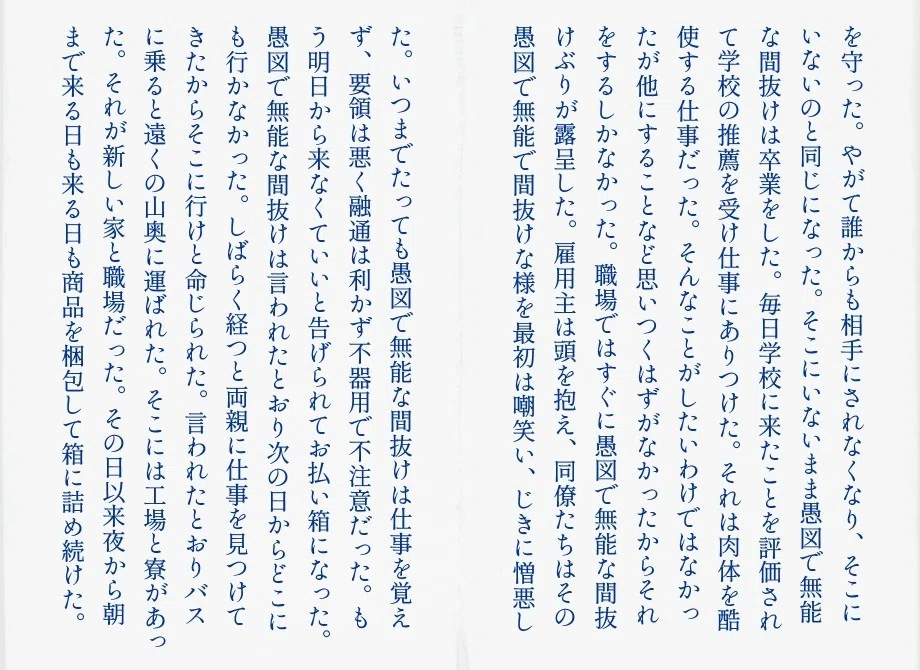 を守った。やがて誰からも相手にされなくなり、そこに
いないのと同じになった。そこにいないまま愚図で無能
な間抜けは卒業をした。毎日学校に来たことを評価され
て学校の推薦を受け仕事にありつけた。それは肉体を酷
使する仕事だった。そんなことがしたいわけではなかっ
たが他にすることなど思いつくはずがなかったからそれ
をするしかなかった。職場ではすぐに愚図で無能な間抜
けぶりが露呈した。雇用主は頭を抱え、同僚たちはその
愚図で無能で間抜けな様を最初は嘲笑い、じきに憎悪し
た。いつまでたっても愚図で無能な間抜けは仕事を覚え
ず、要領は悪く融通は利かず不器用で不注意だった。も
う明日から来なくていいと告げられてお払い箱になった。
愚図で無能な間抜けは言われたとおり次の日からどこに
も行かなかった。しばらく経つと両親に仕事を見つけて
きたからそこに行けと命じられた。言われたとおりバス
に乗ると遠くの山奥に運ばれた。そこには工場と寮があっ
た。それが新しい家と職場だった。その日以来夜から朝
まで来る日も来る日も商品を梱包して箱に詰め続けた。